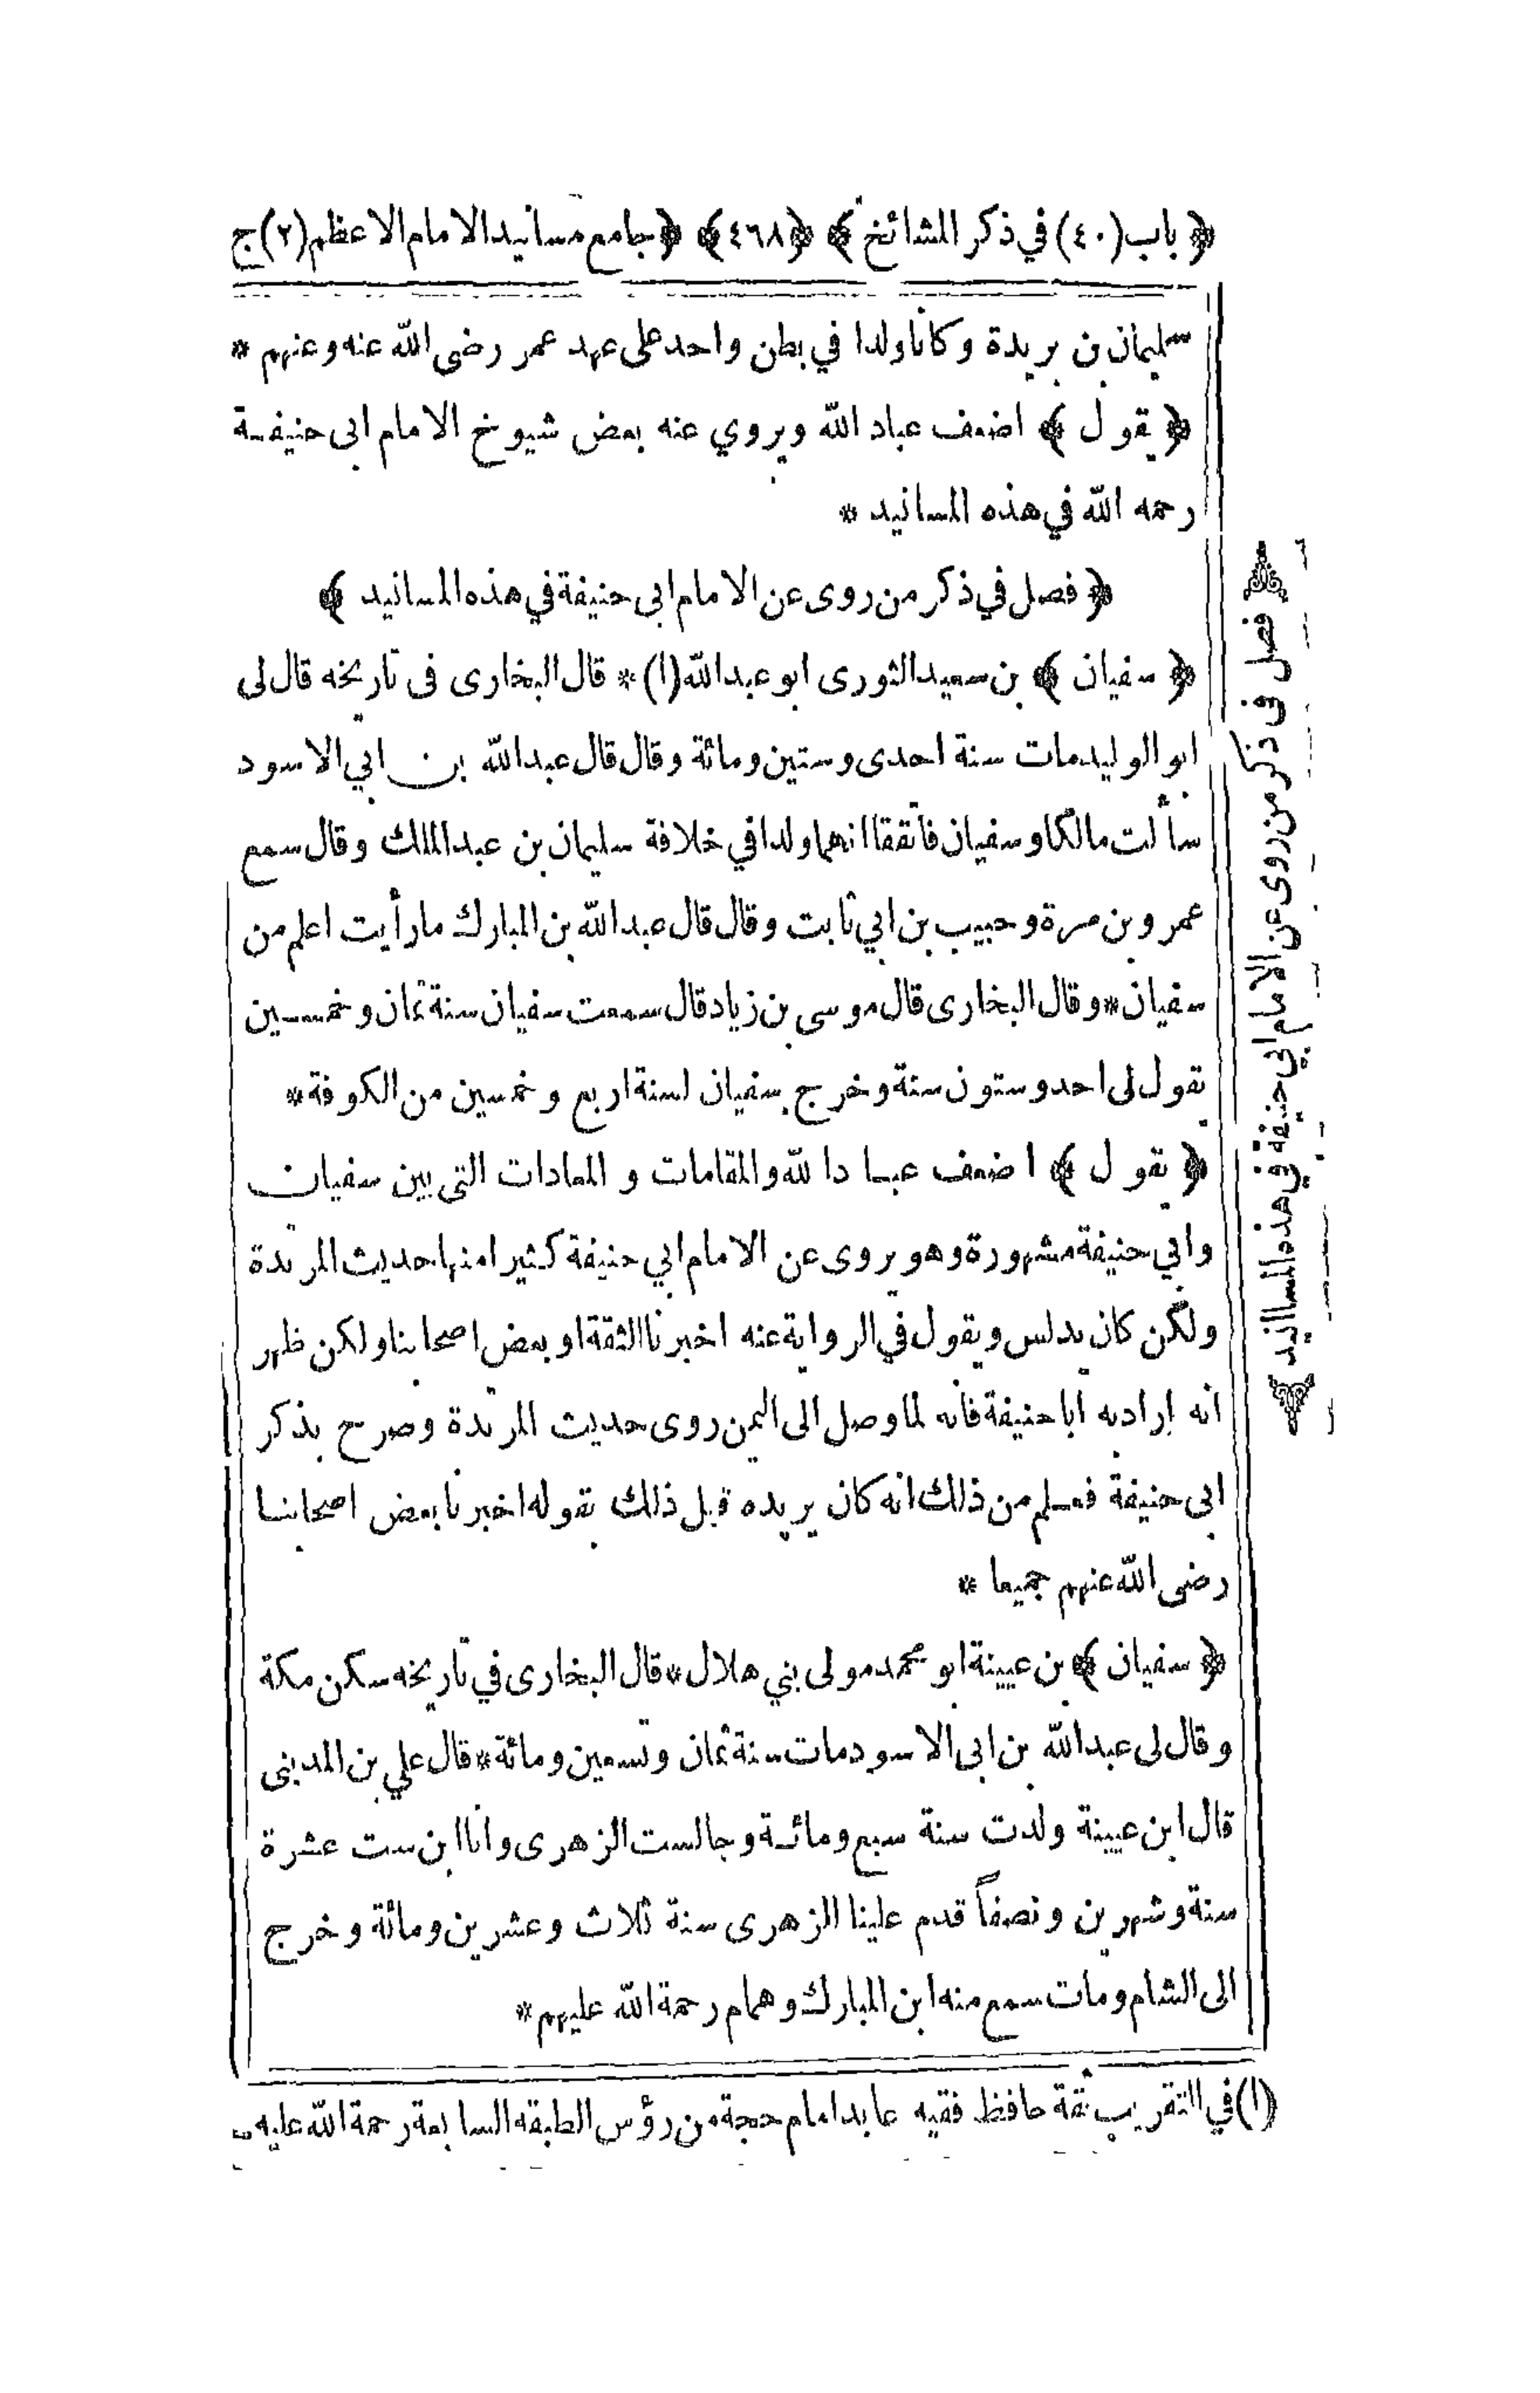 ﴿ باب (٤٠) في ذكر المشائخ ﴾ ﴿٤٦٨﴾ ﴿ جامع مسانيد الامام الاعظم (٢) ج
سليمان بن بريدة وكانا ولدا في بطن واحد على عهد عمر رضى الله عنه وعنهم *
﴿ يقول ﴾ اضعف عباد الله ويروي عنه بعض شيوخ الامام ابى حنيفة
رحمه الله في هذه المسانيد *
﴿ فصل في ذكر من روى عن الامام ابى حنيفة في هذه المسانيد ﴾
﴿ سفيان ﴾ بن سعيد الثورى ابو عبد الله (١) * قال البخارى فى تاريخه قال لى
ابو الوليد مات سنة احدى وستين ومائة وقال قال عبد الله بن ابي الاسود
سألت مالكا وسفيان فاتفقا انهما ولدا في خلافة سليمان بن عبد الملك وقال سمع
عمرو بن مرة وحبيب بن ابي ثابت وقال قال عبد الله بن المبارك ما رأيت اعلم من
سفيان * وقال البخارى قال موسى بن زياد قال سمعت سفيان سنة ثمان وخمسين
يقول لى احد وستون سنة وخرج سفيان لسنة اربع وخمسين من الكوفة *
﴿ يقول ﴾ اضعف عباد الله والمقامات و المعادات التى بين سفيان
وابي حنيفة مشهورة وهو يروى عن الامام ابي حنيفة كثيرا منها حديث المرتدة
ولكن كان يدلس ويقول في الرواية عنه اخبرنا الثقة او بعض اصحابنا ولكن ظهر
انه اراد به ابا حنيفة فانه لما وصل الى اليمن روى حديث المرتدة وصرح بذكر
ابى حنيفة فعلم من ذلك انه كان يريده قبل ذلك بقوله اخبرنا بعض اصحابنا
رضى الله عنهم جميعا *
﴿ سفيان ﴾ بن عيينة ابو محمد مولى بني هلال * قال البخارى في تاريخه سكن مكة
وقال لى عبد الله بن ابى الاسود مات سنة ثمان وتسعين ومائة * قال علي بن المدينى
قال ابن عيينة ولدت سنة سبع ومائة وجالست الزهرى وانا ابن ست عشرة
سنة وشهرين ونصفاً قدم علينا الزهرى سنة ثلاث وعشرين ومائة وخرج
الى الشام ومات سمع منه ابن المبارك وهمام رحمة الله عليهم *
(١) في التقريب ثقة حافظ فقيه عابد امام حجة من رؤس الطبقه السابعة رحمة الله عليه
فصل فى ذكر من روى عن الامام ابي حنيفة في هذه المسانيد